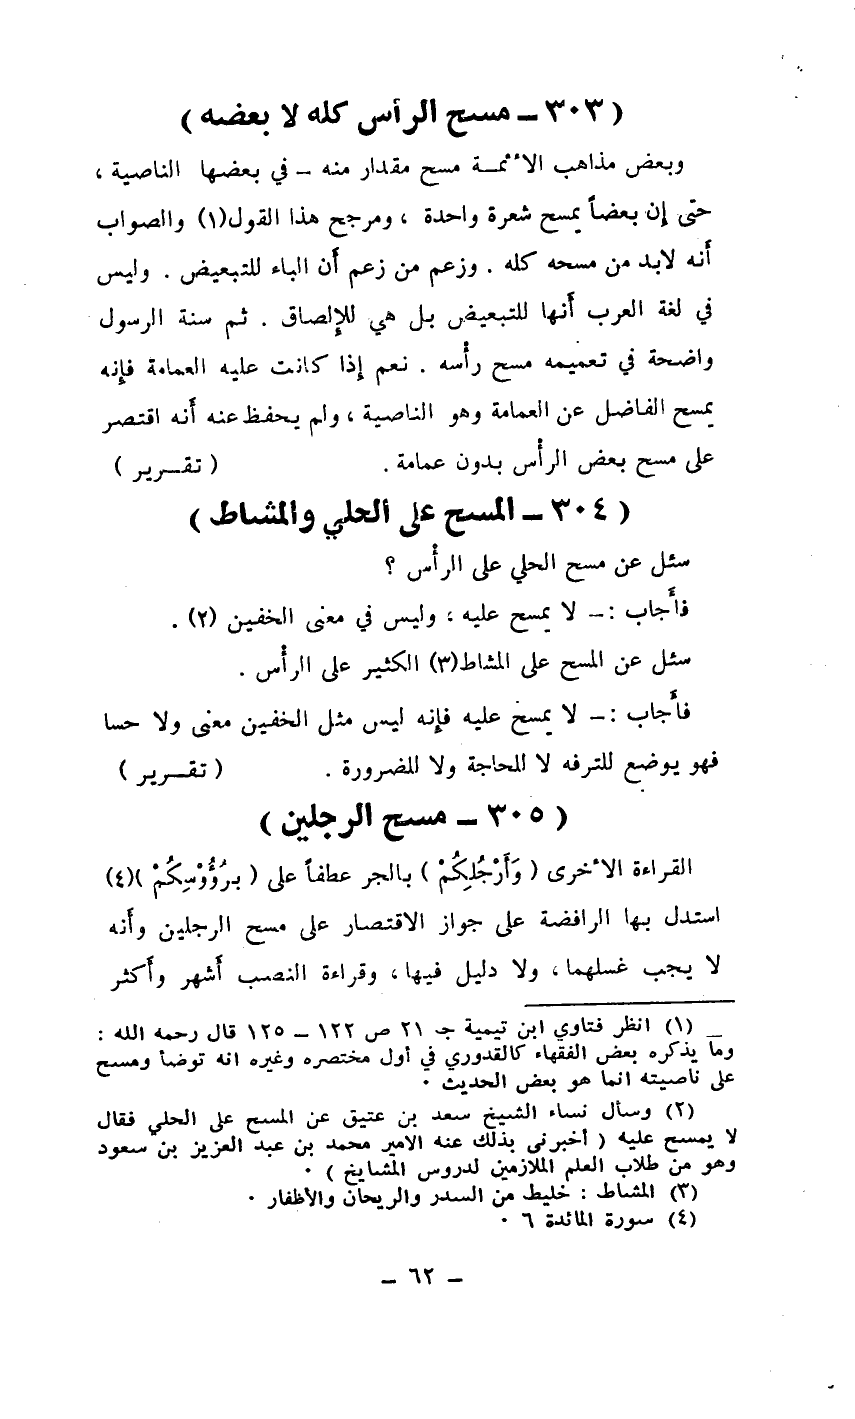 ( ٣٠٣ ــ مسح الرأس كله لا بعضه )
وبعض مذاهب الأئمــة مسح مقدار منه ــ في بعضها الناصية ،
حتى إن بعضاً يمسح شعرة واحدة ، ومرجح هذا القول(١) والصواب
أنه لابد من مسحه كله . وزعم من زعم أن الباء للتبعيض . وليس
في لغة العرب أنها للتبعيض بل هي للإلصاق . ثم سنة الرسول
واضحة في تعميمه مسح رأسه . نعم إذا كانت عليه العمامة فإنه
يمسح الفاضل عن العمامة وهو الناصية ، ولم يحفظ عنه أنه اقتصر
على مسح بعض الرأس بدون عمامة . ( تقــرير )
( ٣٠٤ ــ المسح على الحلي والمشاط )
سئل عن مسح الحلي على الرأس ؟
فأجاب :ــ لا يمسح عليه ، وليس في معنى الخفين (٢) .
سئل عن المسح على المشاط(٣) الكثير على الرأس .
فأجاب :ــ لا يمسح عليه فإنه ليس مثل الخفين معنى ولا حسا
فهو يوضع للترفه لا للحاجة ولا للضرورة . ( تقــرير )
( ٣٠٥ ــ مسح الرجلين )
القراءة الأخرى ( وَأَرْجُلِكُمْ ) بالجر عطفاً على ( بِرُؤُوْسِكُمْ )(٤)
استدل بها الرافضة على جواز الاقتصار على مسح الرجلين وأنه
لا يجب غسلهما، ولا دليل فيها، وقراءة النصب أشهر وأكثر
ــ (١) انظر فتاوي ابن تيمية جـ ٢١ ص ١٢٢ ــ ١٢٥ قال رحمه الله :
وما يذكره بعض الفقهاء كالقدوري في أول مختصره وغيره انه توضأ ومسح
على ناصيته انما هو بعض الحديث ٠
(٢) وسأل نساء الشيخ سعد بن عتيق عن المسح على الحلي فقال
لا يمسح عليه ( أخبرنى بذلك عنه الامير محمد بن عبد العزيز بن سعود
وهو من طلاب العلم الملازمين لدروس المشايخ ) ٠
(٣) المشاط : خليط من السدر والريحان والأظفار ٠
(٤) سورة المائدة ٦ ٠
ــ ٦٢ ــ